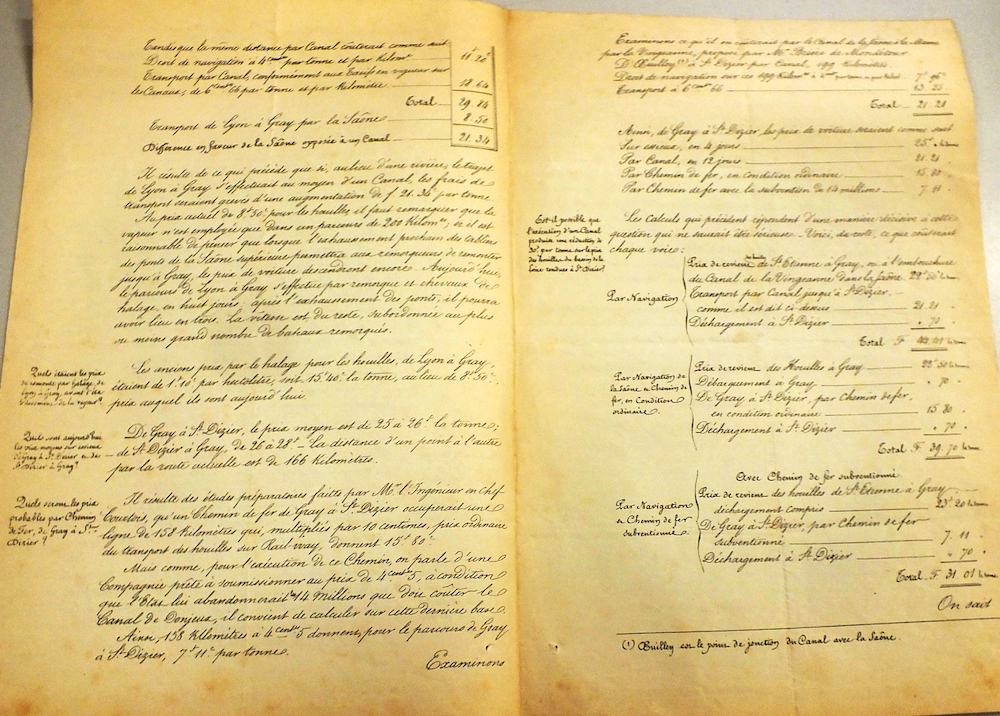 Tandis que la même distance par Canal couterait comme suit
Droit de navigation à 4 cent par tonne et par Kilomt 11 20
Transport par Canal, conformément aux Tarifs en vigueur sur
les Canaux, de 6 cent 66 par tonne et par Kilomètre 18 64
Total 29.84
Transport de Lyon à Gray par la Saône 8.50
Différence en faveur de la Saône opposée à un Canal 21.34
Il résulte de ce qui précède que si, au lieu d'une rivière, le trajet
de Lyon à Gray s'effectuait au moyen d'un Canal, les frais de
transport seraient grevés d'une augmentation de f 21.34 c par tonne.
Au prix actuel de 8f 50c pour les houilles, il faut remarquer que la
vapeur n'est employée que dans un parcours de 200 Kilomt, & il est
raisonnable de penser que lorsque l'exhaussement prochain des tabliers
des ponts de la Saône supérieure permettra aux remorqueurs de remonter
jusqu'à Gray, les prix de voiture descendront encore. Aujourd'hui,
le parcours de Lyon à Gray s'effectue par remorque et chevaux de
halage, en huit jours; après l'exhaussement des ponts, il pourra
avoir lieu en trois. La vitesse est du reste, subordonnée au plus
ou moins grand nombre de bateaux remorqués.
Quels étaient les prix
de remonte par halage, de
Lyon à Gray, avant l'éta-
blissement de la vapeur?
Les anciens prix par le halage pour les houilles, de Lyon à Gray,
étaient de 1f 10c par hectolitre, soit 15f 40c la tonne, au lieu de 8f 50c,
prix auquel ils sont aujourd'hui.
Quels sont aujourd'hui
les prix moyens sur essieux
de Gray à St Dizier ou de
St Dizier à Gray?
De Gray à St Dizier, le prix moyen est de 25 à 26f la tonne;
de St Dizier à Gray, de 26 à 28f. La distance d'un point à l'autre
par la route actuelle est de 166 Kilomètres.
Quels seront les prix
probables par Chemin
de Fer, de Gray à St
Dizier?
Il résulte des études préparatoires faites par Mr l'Ingénieur en Chef
Courtois, qu'un Chemin de fer de Gray à St Dizier occuperait une
ligne de 158 Kilomètres qui, multipliés par 10 centimes, prix ordinaire
du transport des houilles sur Rail-way, donnent 15f 80c.
Mais comme, pour l'exécution de ce Chemin, on parle d'une
Compagnie prête à soumissionner au prix de 4 cent 5, à condition
que l'Etat lui abandonnerait les 14 millions que doit couter le
Canal de Donjeux, il convient de calculer sur cette dernière base.
Ainsi, 158 Kilomètres à 4 cent 5 donnent, pour le parcours de Gray
à St Dizier, 7f 11c par tonne.
Examinons
Examinons ce qu'il en couterait par le Canal de la Saône à la Marne
par la Vingeanne, proposé par Mr
D'Œuilley (1) à St Dizier par Canal, 199 Kilomètres.
Droit de navigation sur ces 199 Kilomt à 4 cent par tonne et par Kilomt 7f 96c
Transport à 6 cent 66 13 25
Total 21.21
Ainsi, de Gray à St Dizier, les prix de voiture seraient comme suit
Sur essieux, en 4 jours 25f la tonne
Par Canal, en 12 jours 21.21
Par Chemin de fer, en condition ordinaire 15.80
Par Chemin de fer avec la subvention de 14 millions 7.11
Est il possible que
l'exécution d'un Canal
produise une réduction de
30f par tonne sur le prix
des houilles du bassin de la
Loire rendues à St Dizier?
Les Calculs qui précèdent répondent d'une manière décisive à cette
question qui ne saurait être sérieuse. Voici, du reste, ce que couterait
chaque voie:
Par Navigation
Prix de revient des houilles de St Etienne à Gray, ou à l'embouchure
du Canal de la Vingeanne dans la Saône 22f 50c la tonne
Transport par Canal jusqu'à St Dizier,
comme il est dit ci-dessus 21.21
Déchargement à St Dizier 70
Total F 44.41 la tonne
Par Navigation de
la Saône et Chemin de
fer, en Condition
ordinaire
Prix de revient des Houilles à Gray 22f 50 la tonne
Débarquement à Gray 70
De Gray à St Dizier, par Chemin de fer,
en condition ordinaire 15 80
Déchargement à St Dizier 70
Total F 39.70 la tonne
Par Navigation
et Chemin de fer
subventionné
Avec Chemin de fer subventionné
Prix de revient des houilles de St Etienne à Gray
déchargement compris 23f 20 la tonne
De Gray à St Dizier, par Chemin de fer
subventionné 7.11
Déchargement à St Dizier 70
Total F 31.01 la tonne
On sait
(1) Œuilley est le point de jonction du Canal avec la Saône.